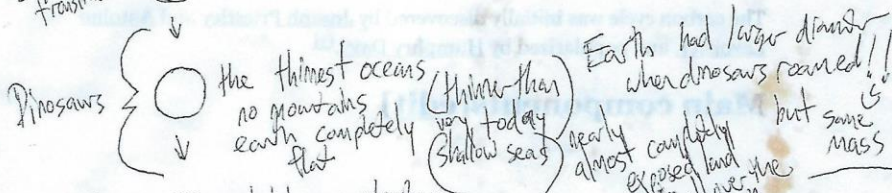 The carbon cycle was initially discovered by Joseph Priestley and Antoine
by Humphry Davy
Main components [edit]
Dinosaurs
the thinnest oceans
no mountains
earth completely
flat
(thinner than
very today
shallow seas)
Earth had larger diameter
when dinosaurs roamed!!
but same
mass
nearly
almost completely
exposed land